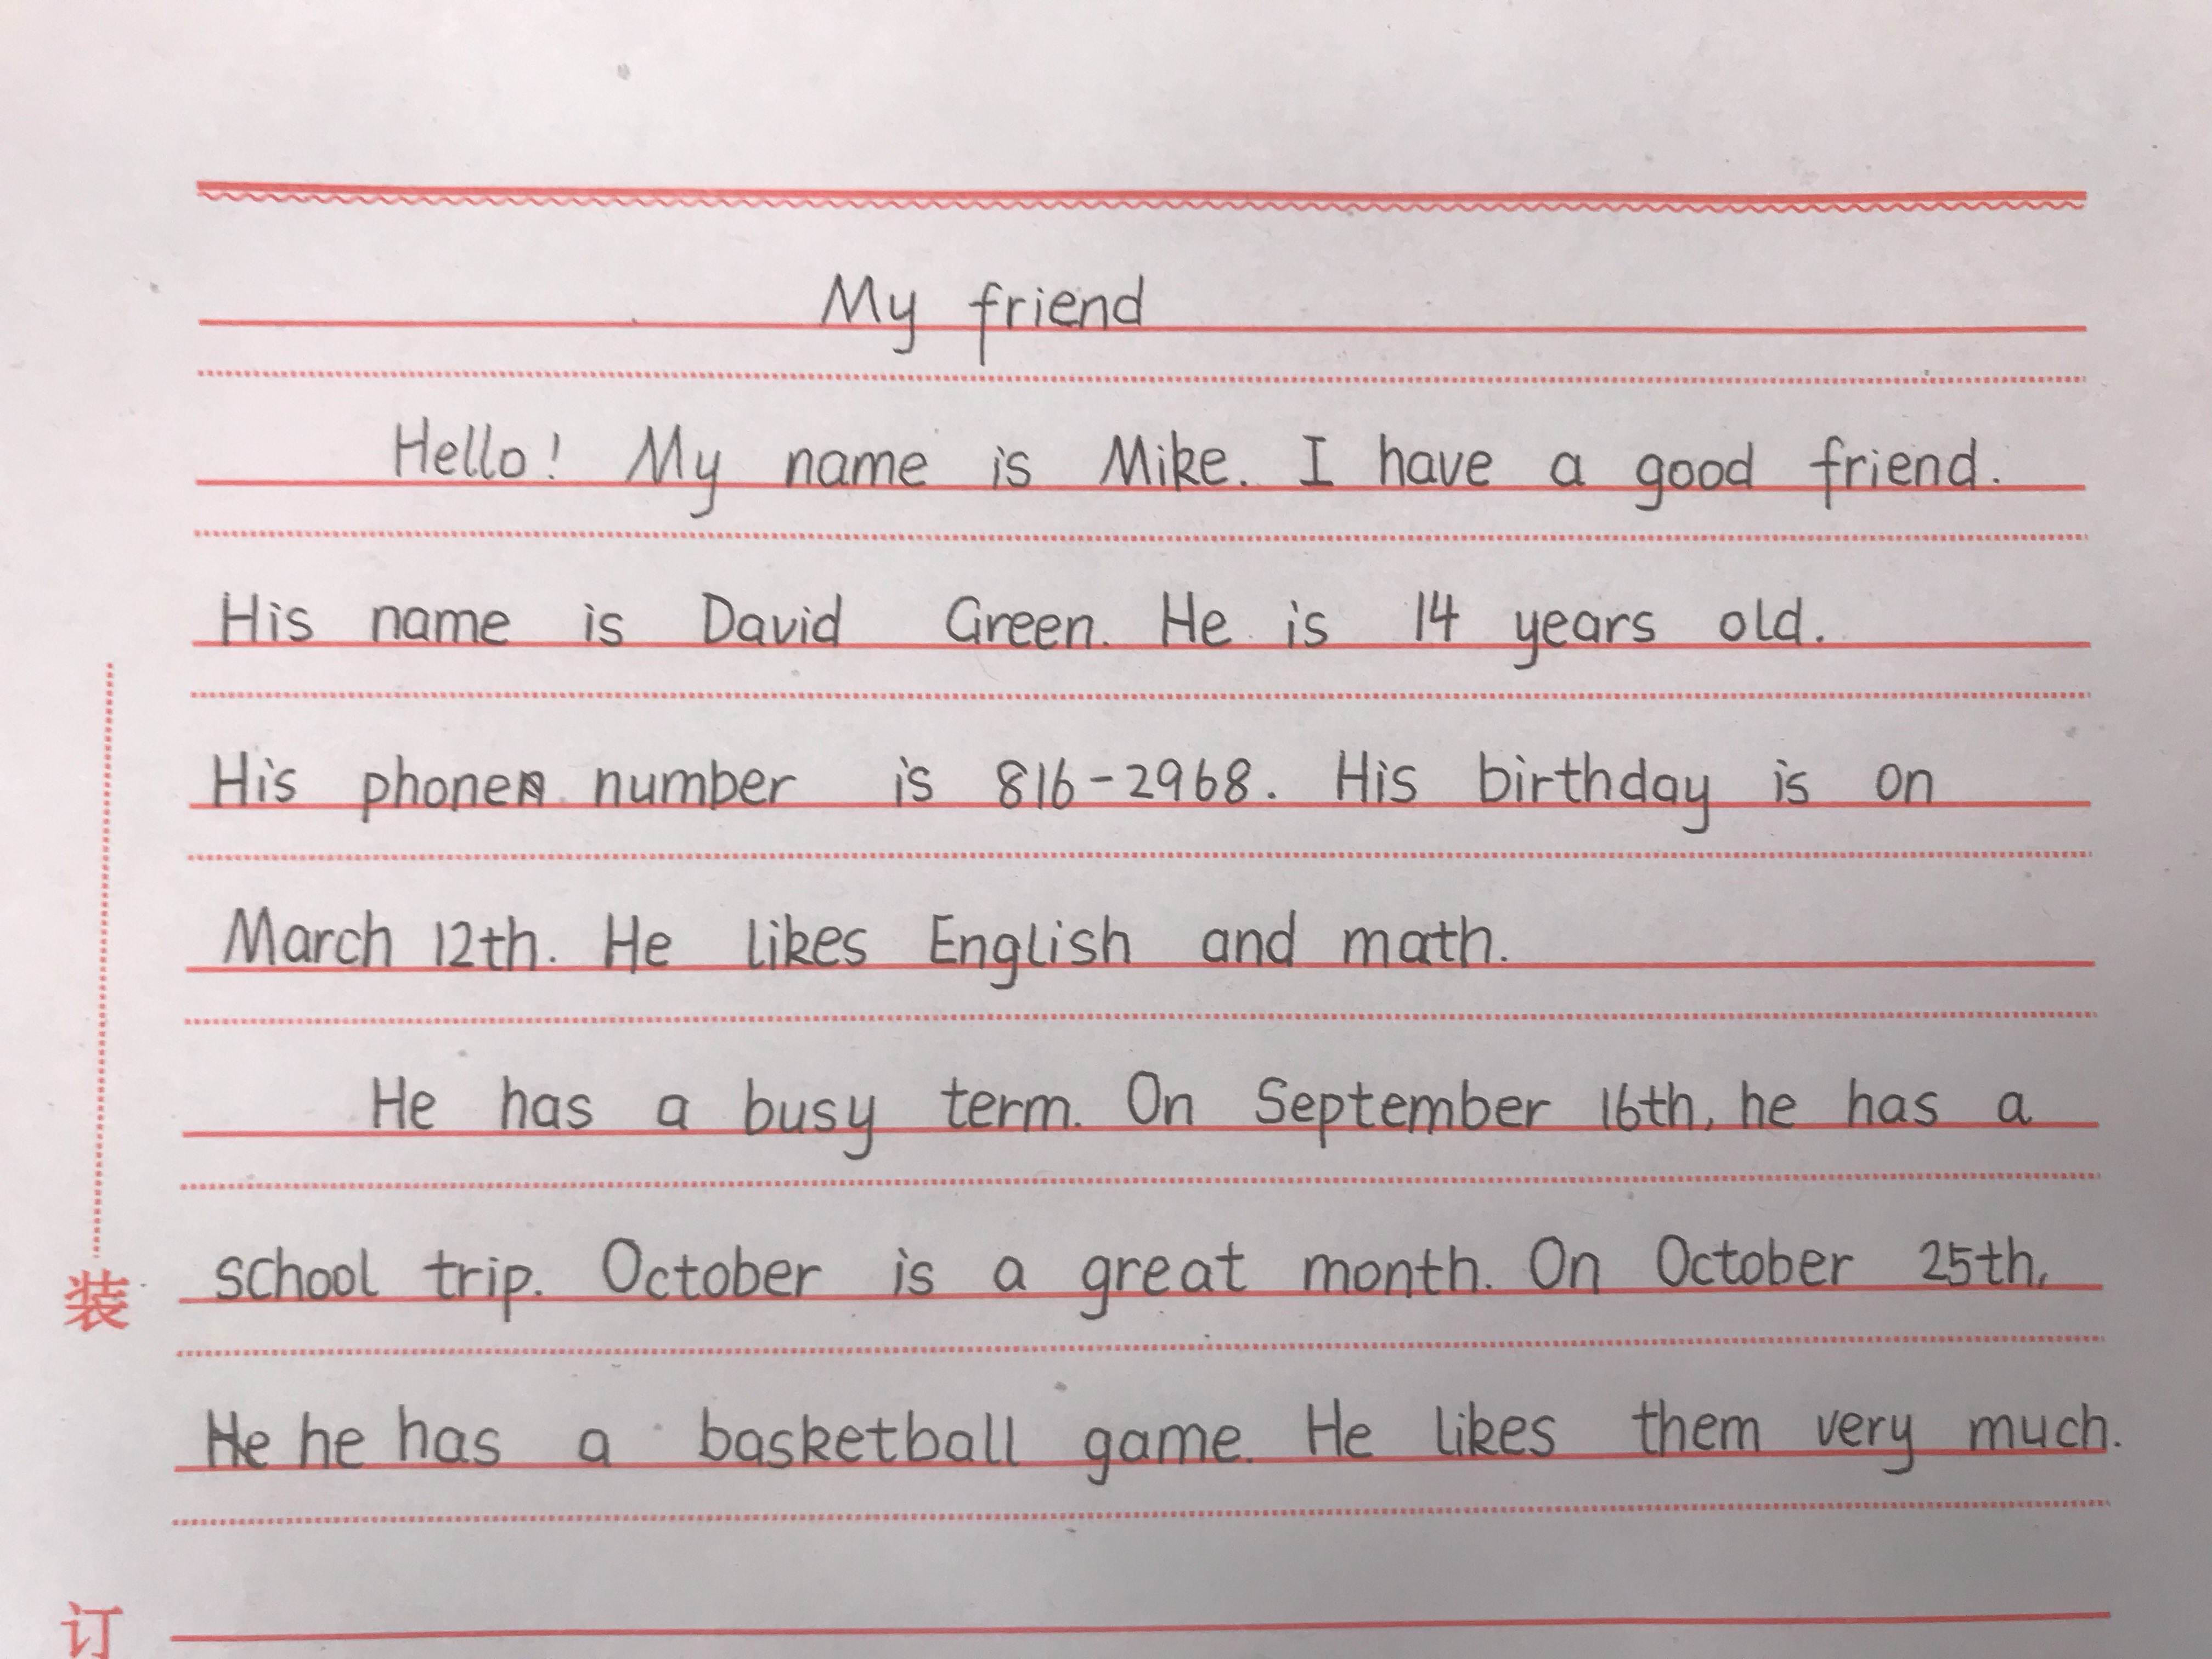 My friend
Hello! My name is Mike. I have a good friend.
His name is David Green. He is 14 years old.
His phone number is 816-2968. His birthday is on
March 12th. He likes English and math.
He has a busy term. On September 16th, he has a
装
school trip. October is a great month. On October 25th,
He he has a basketball game. He likes them very much.
订